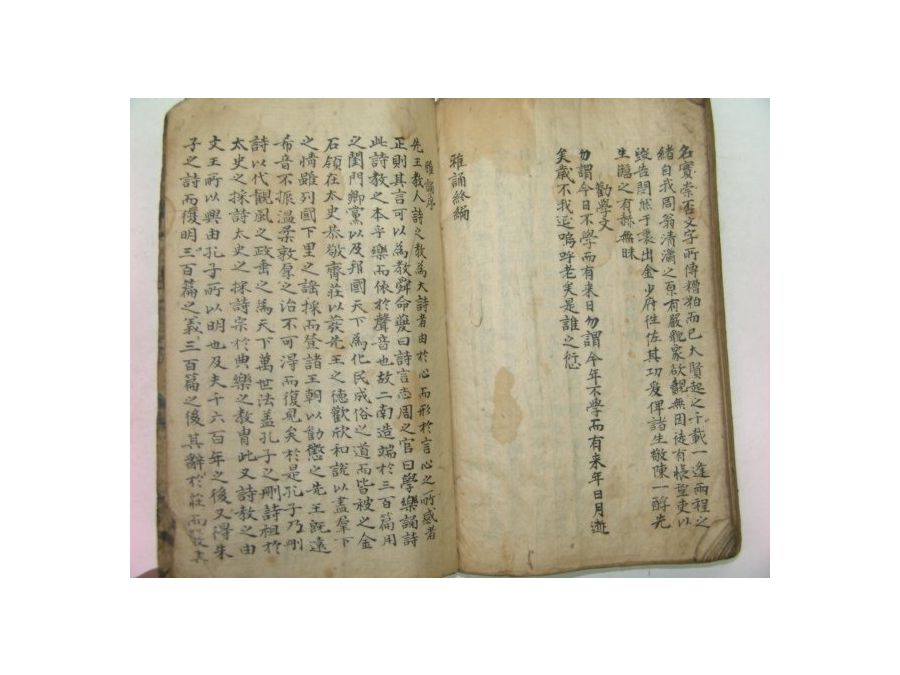 名實崇否文字所傳糟粕而已大賢起之千載一逢兩程之
緖自我周翁淸瀟之亘有嚴覩象欲觀無因徒有悵望吏以
諉告閔然于裏出金少府往佐其功爰俾諸生敬陳一酹先
生臨之有赫無昧
勸學文
勿謂今日不學而有来日勿謂今年不學而有来年日月逝
矣歲不我延嗚呼老矣是誰之愆
雅誦終編
雅誦序
先王敎人詩之敎為大詩者由於心而形於言心之所感者
正則其言可以為敎舜命夔曰詩言志周之官曰學樂誦詩
此詩敎之本乎樂而依於聲音也故二南造端於三百篇用
之閨門鄕黨以及邦國天下為化民成俗之道而皆被之金
石領在太史恭敬齊莊以發先王之德歡欣和說以盡羣下
之情雖列國下里之謠採而登諸王朝以勸懲之先王旣遠
希音不振溫柔敦厚之治不可得而復見矣於是孔子乃刪
詩以代觀風之政垂之為天下萬世法盖孔子之刪詩祖於
太史之採詩太史之採詩宗於典樂之敎胄此又詩敎之由
文王所以興由孔子所以明也及夫千六百年之後又得朱
子之詩而復明三百篇之義三百篇之後其辭於莊而